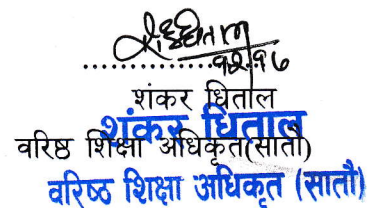 १२।१७
शंकर धिताल
शंकर धिताल
वरिष्ठ शिक्षा अधिकृत(सातौ)
वरिष्ठ शिक्षा अधिकृत (सातौ)